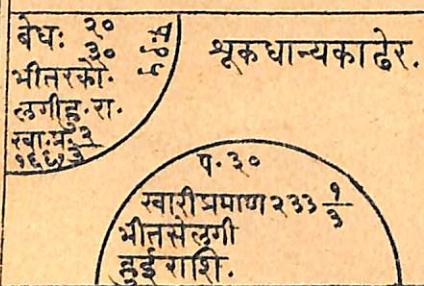 बेधः २०
३०
भीतरको.
लगीहु. रा.
खा. प्र. २/३
१६६
शूकधान्यकाढेर.
प. ३०
खारीप्रमाण २३३ १/३
भीतसेलगी
हुई राशि.